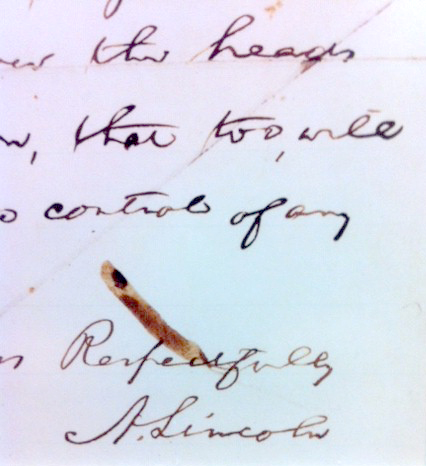 the heads
that too, will
control of any
Respectfully
A. Lincoln